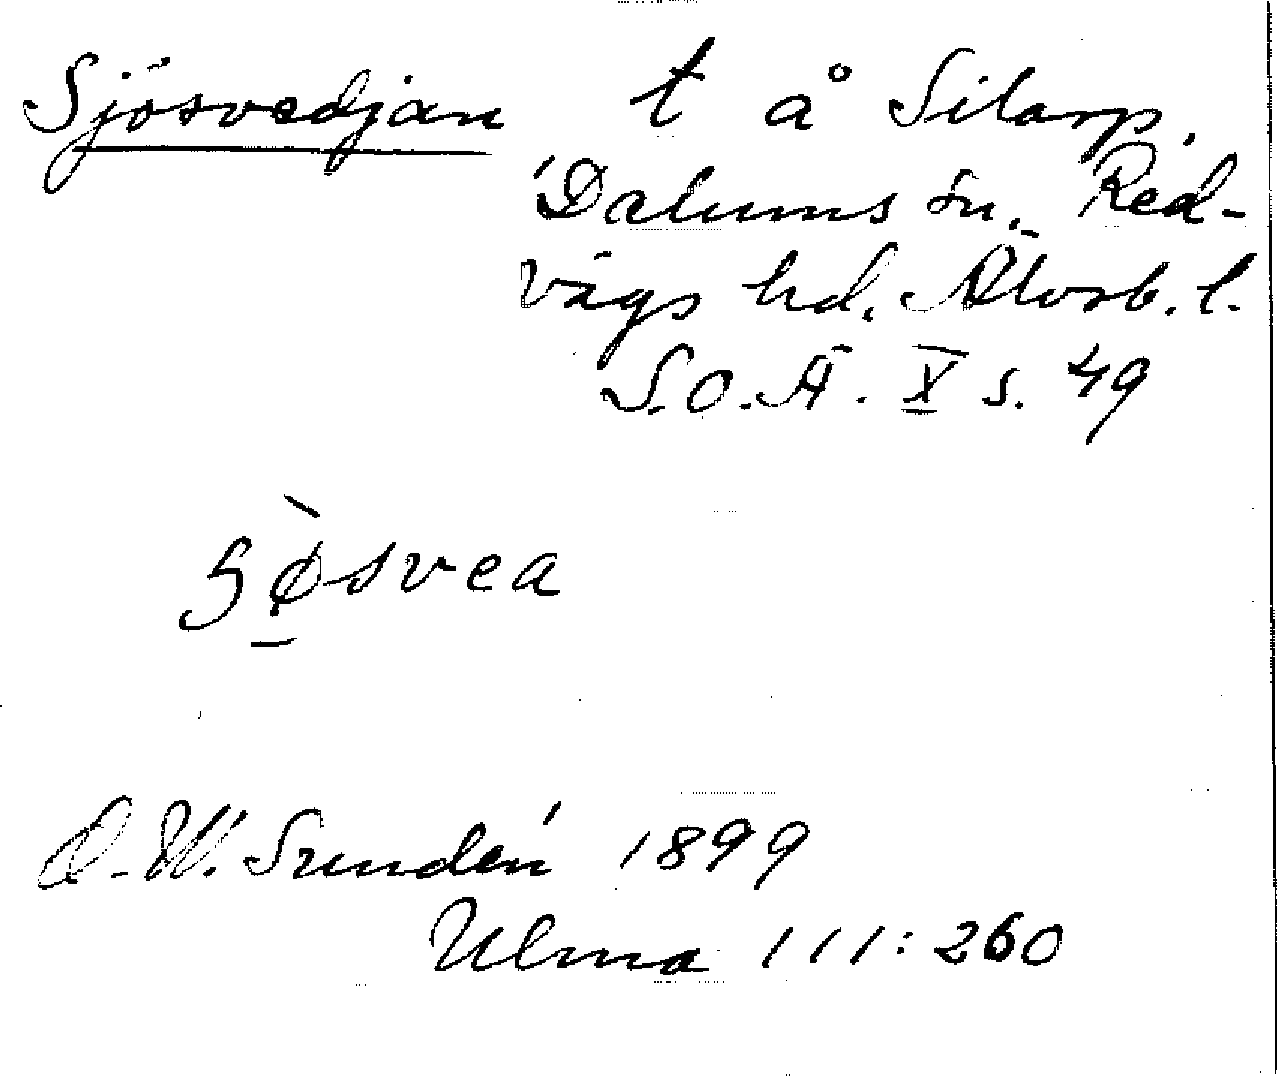 Sjösvedjan t å Silarp,
Dalums sn., Red-
vägs hd. Älvsb. l.
S.O.Ä. X s. 49
Sø̀svea
D.W. Sundén 1899
Ulma 111:260